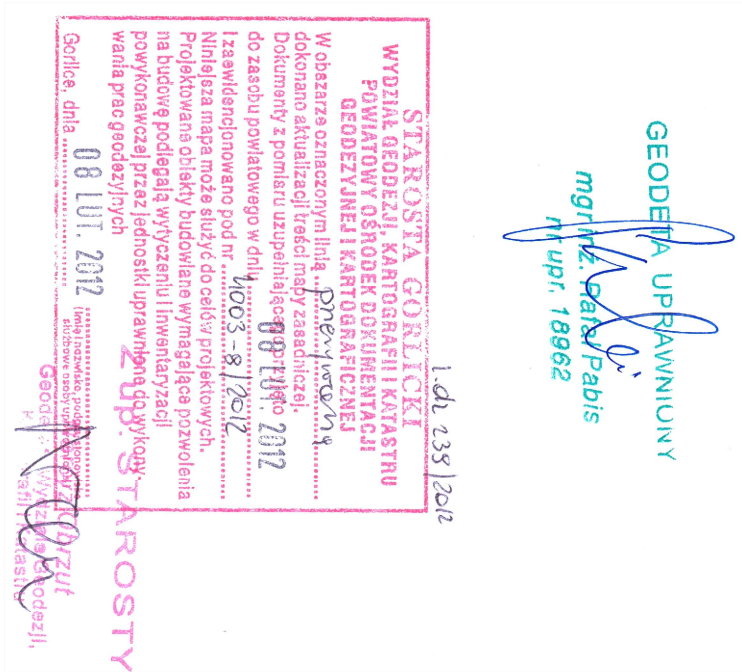 GEODETA UPRAWNIONY
mgr inż. Rafał Pabis
nr upr. 18962
i.dz 239/2012
STAROSTA GORLICKI
WYDZIAŁ GEODEZJI, KARTOGRAFII I KATASTRU
POWIATOWY OŚRODEK DOKUMENTACJI
GEODEZYJNEJ I KARTOGRAFICZNEJ
W obszarze oznaczonym linią przerywaną
dokonano aktualizacji treści mapy zasadniczej.
Dokumenty z pomiaru uzupełniającego przyjęto
do zasobu powiatowego w dniu 08 LUT. 2012
i zaewidencjonowano pod nr 41003-8/2012
Niniejsza mapa może służyć do celów projektowych.
Projektowane obiekty budowlane wymagające pozwolenia
na budowę podlegają wytyczeniu i inwentaryzacji
powykonawczej przez jednostki uprawnione do wykony-
wania prac geodezyjnych
Gorlice, dnia 08 LUT. 2012
(imię i nazwisko, podpis, stanowisko
służbowe osoby
Z up. STAROSTY
Geodezji,